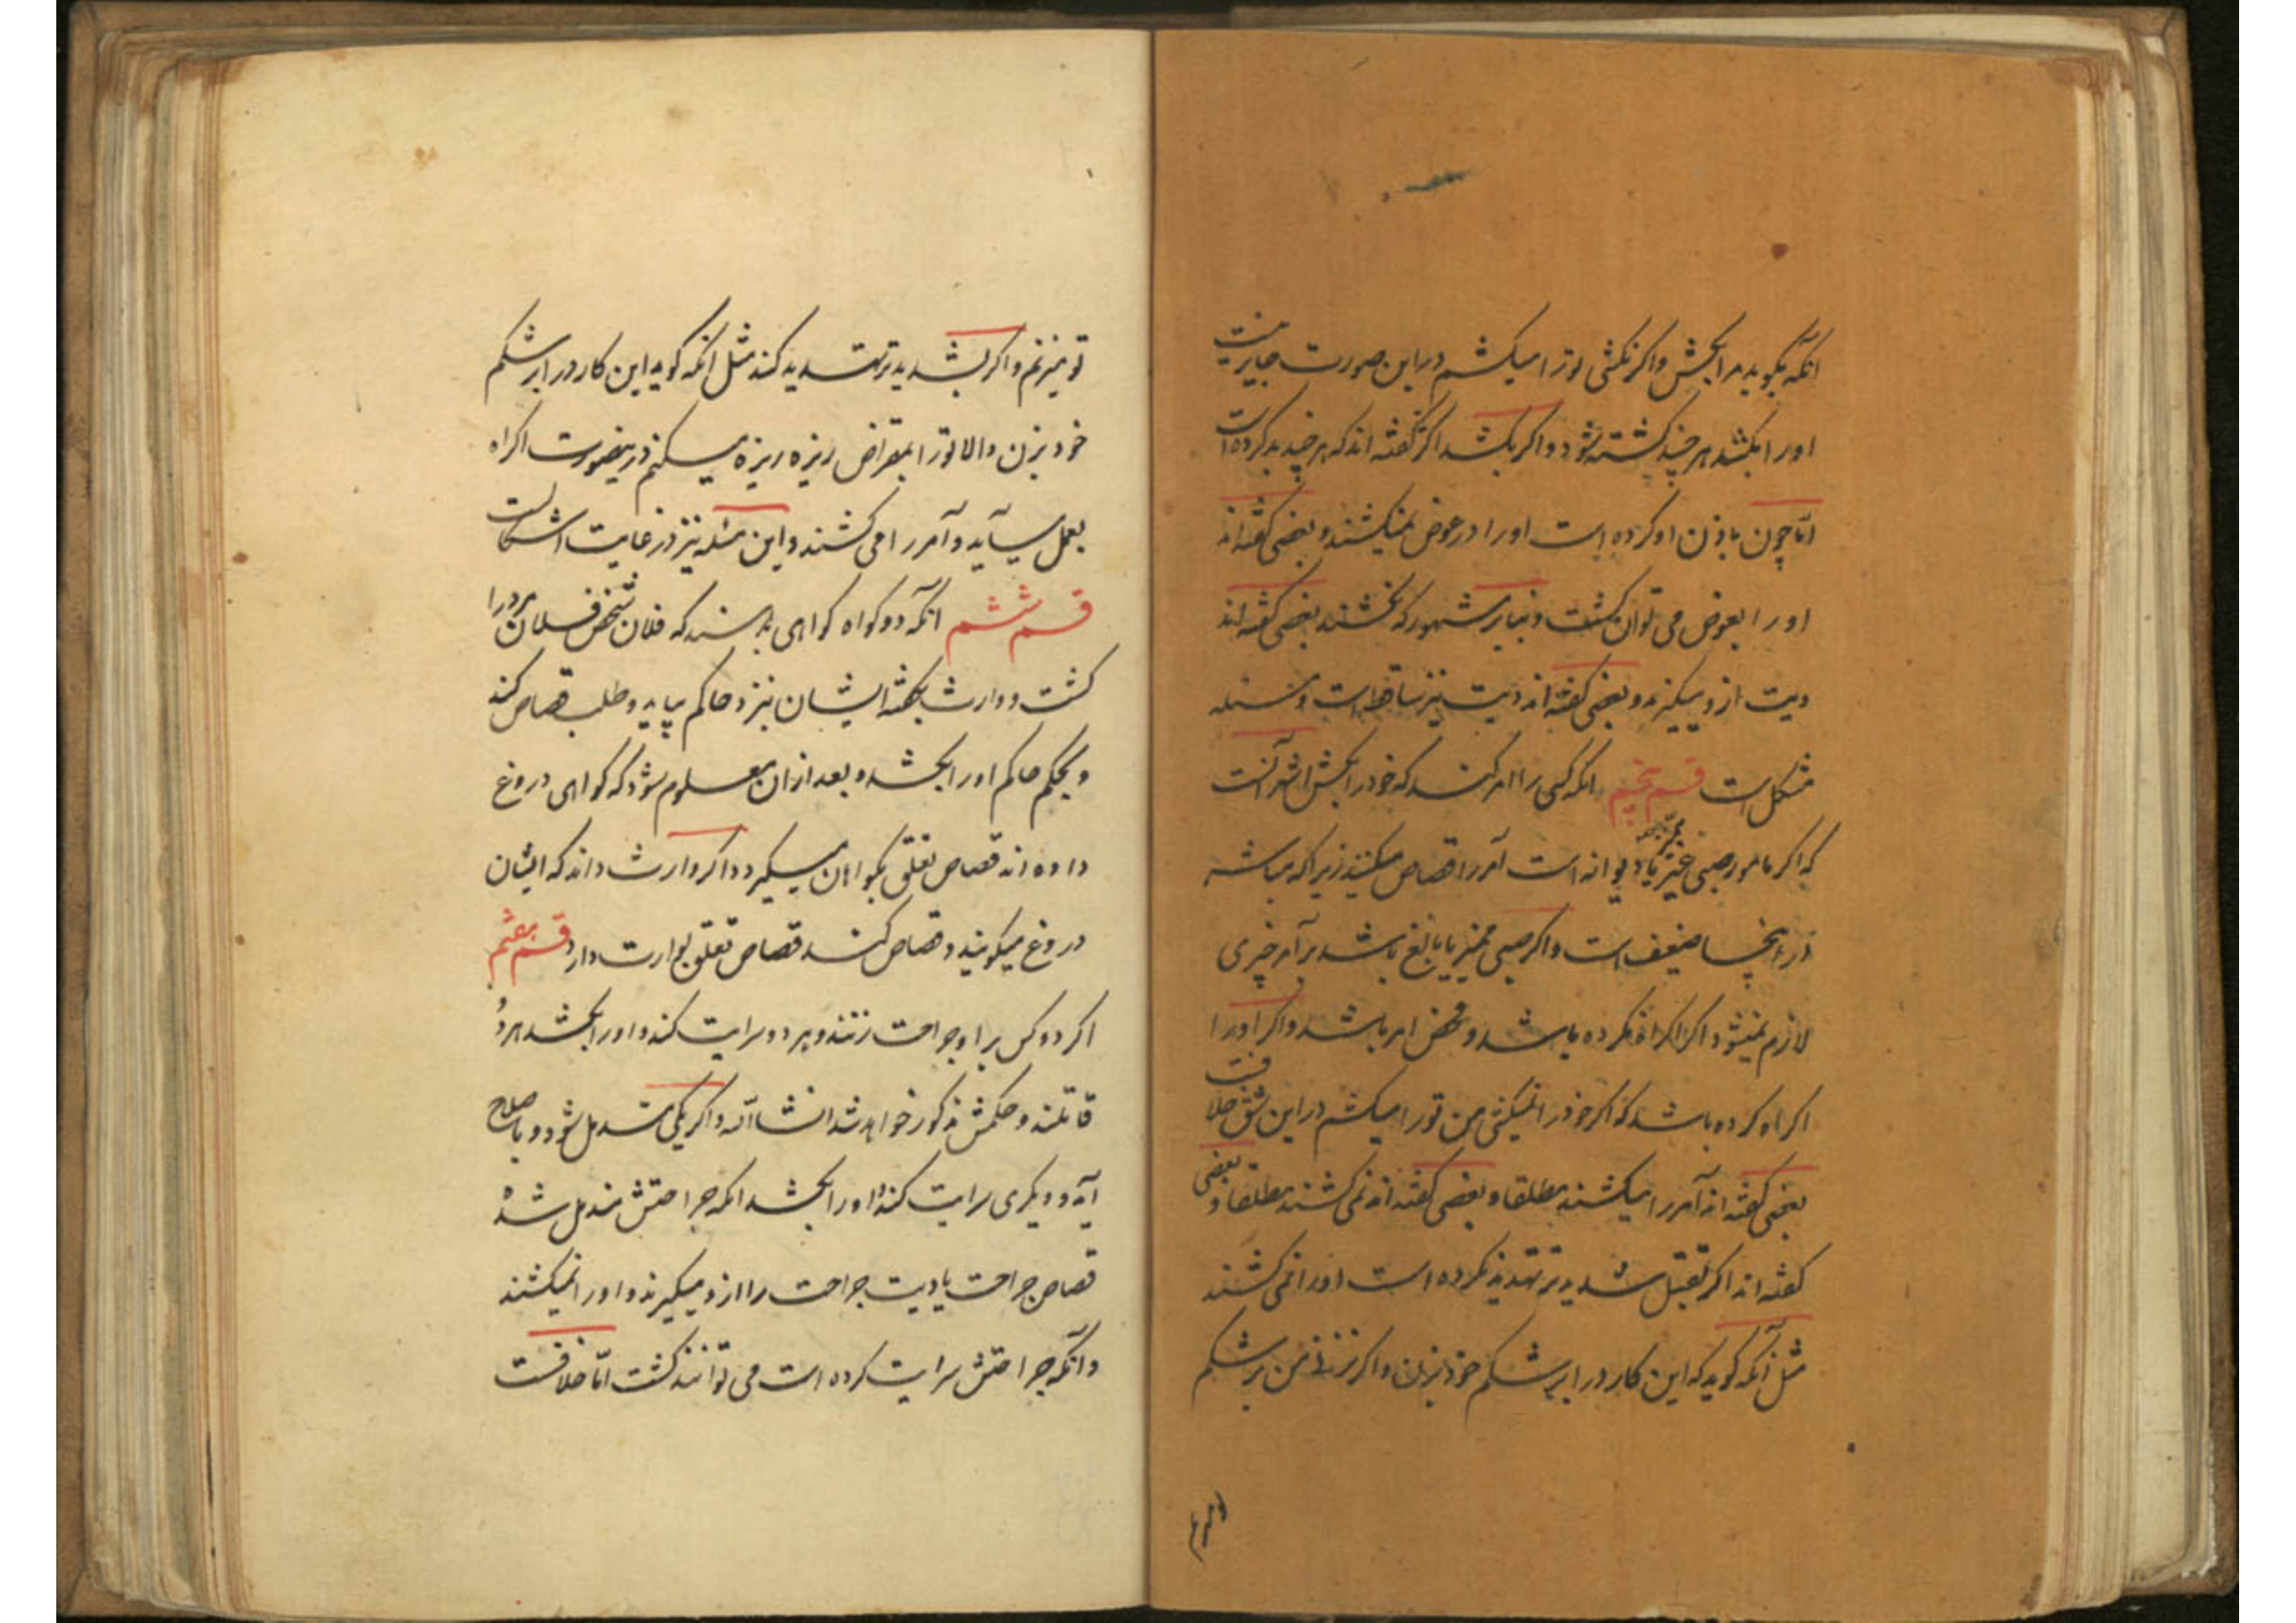 آنکه بگوید مرا بکش و اگر نکشی تو را میکشم در این صورت جایز نیست
او را بکشد هر چند کشته شود و اگر بکشد اکثر گفته اند که هر چند بد کرده است
اما چون باذن او کرده است او را در عوض نمیکشند و بعضی گفته اند
او را بعوض می توان کشت و بنا بر مشهور که نکشند بعضی گفته اند
دیت ازو میگیرند و بعضی گفته اند دیت نیز ساقط است و مسئله
مشکل است قسم پنجم آنکه کسی را امر کند که خود را بکش اشهر آنست
که اگر مامور صبی غیر ممیز یا دیوانه است آمر را قصاص میکنند زیرا که مباشر
در اینجا ضعیف است و اگر صبی ممیز یا بالغ باشد بر آمر چیزی
لازم نمیشود اگر اکراه نکرده باشد و محض امر باشد و اگر او را
اکراه کرده باشد که اگر خود را نمیکشی من تو را میکشم در این شق خلافست
بعضی گفته اند آمر را میکشند مطلقا و بعضی گفته اند نمی کشند مطلقا و بعضی
گفته اند اگر بقتل شدیدتر تهدید نکرده است او را نمی کشند
مثل آنکه گوید که این کارد را بر شکم خود بزن و اگر نزنی من بر شکم
تو میزنم
تو میزنم و اگر بشدیدتر تهدید کند مثل آنکه گوید این کارد را بر شکم
خود بزن و الا تو را بمقراض ریزه ریزه میکنم درینصورت اکراه
بعمل میآید و آمر را می کشند و این مسئله نیز در غایت اشکالست
قسم ششم آنکه دو گواه گواهی بدهند که فلان شخص فلان مرد را
کشت و وارث بگفته ایشان بنزد حاکم بیاید و طلب قصاص کند
و بحکم حاکم او را بکشد و بعد ازان معلوم شود که گواهی دروغ
داده اند قصاص تعلق بگواهان میگیرد و اگر وارث داند که ایشان
دروغ میگویند و قصاص کند قصاص تعلق بوارث دارد قسم هفتم
اگر دو کس بر او جراحت زنند و هر دو سرایت کند و او را بکشد هر دو
قاتلند و حکمش مذکور خواهد شد انشاالله و اگر یکی مندمل شود و باصلاح
آید و دیگری سرایت کند و او را بکشد آنکه جراحتش مندمل شده
قصاص جراحت یا دیت جراحت را ازو میگیرند و او را نمیکشند
و آنکه جراحتش سرایت کرده است می توانند کشت اما خلافست